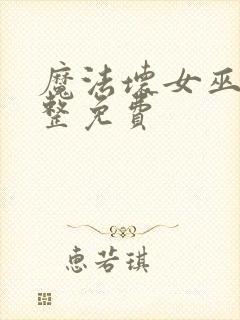 魔法壞女巫
整免費
惠若琪